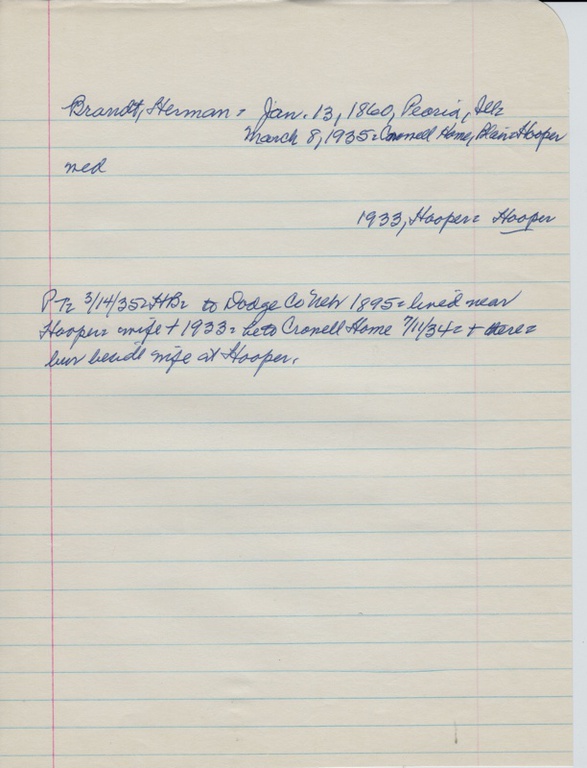 Brandt, Herman = Jan. 13, 1860, Peoria, Ill=
March 8, 1935 = Crowell Home, Blair = Hooper
med
1933, Hooper = Hooper
P-T= 3/14/35 = HB= to Dodge Co Nebr 1895 = lived near
Hooper = wife + 1933 = he to Crowell Home 7/11/34 = + there =
bur beside wife at Hooper.